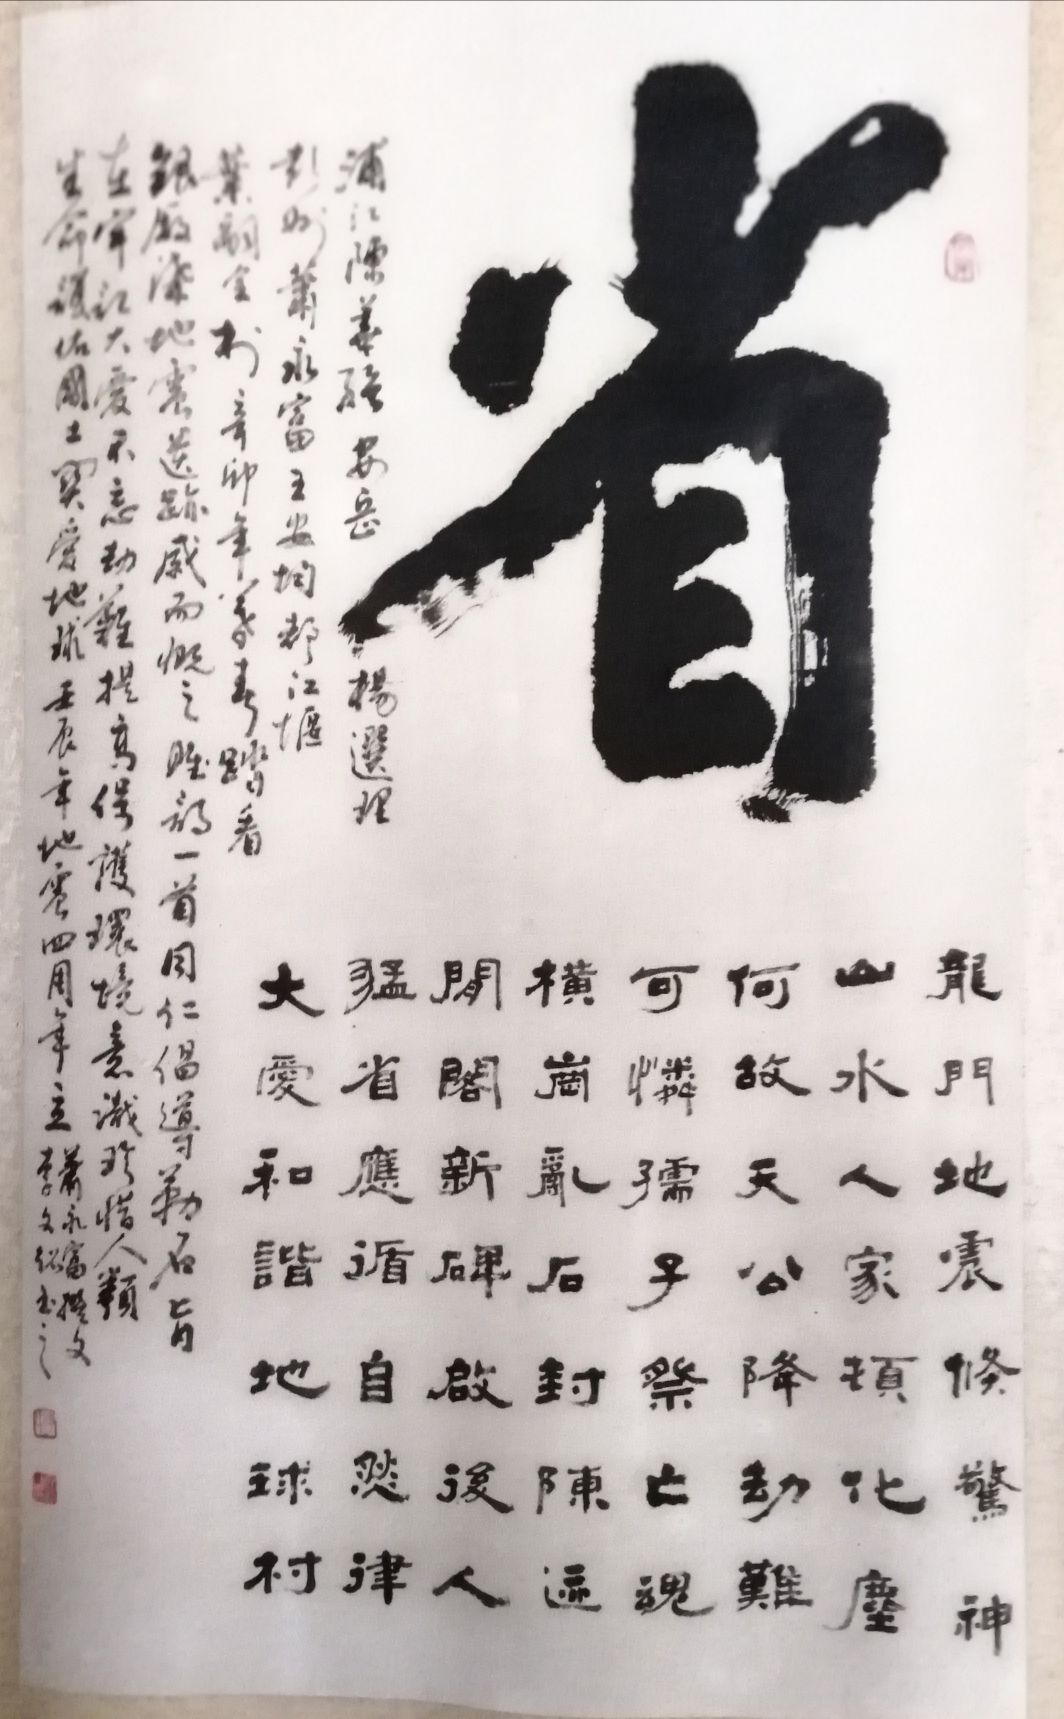 省
龍門地震倏驚神
山水人家頃化塵
何故天公降劫難
可憐孺子祭亡魂
橫崗亂石封陳迹
開閣新碑啟後人
猛省應循自然律
大愛和諧地球村
浦江陳義 安岳 楊選理
彭州蕭永富王安均都江堰
葉嗣金 於辛卯年暮春踏看
銀廠溝地震遺跡感而慨之賦詩一首同仁倡導勒石旨
在牢記大愛不忘劫難提高保護環境意識珍惜人類
生命護佑國土關愛地球壬辰年地震四周年立
蕭永富撰文
李文 書之